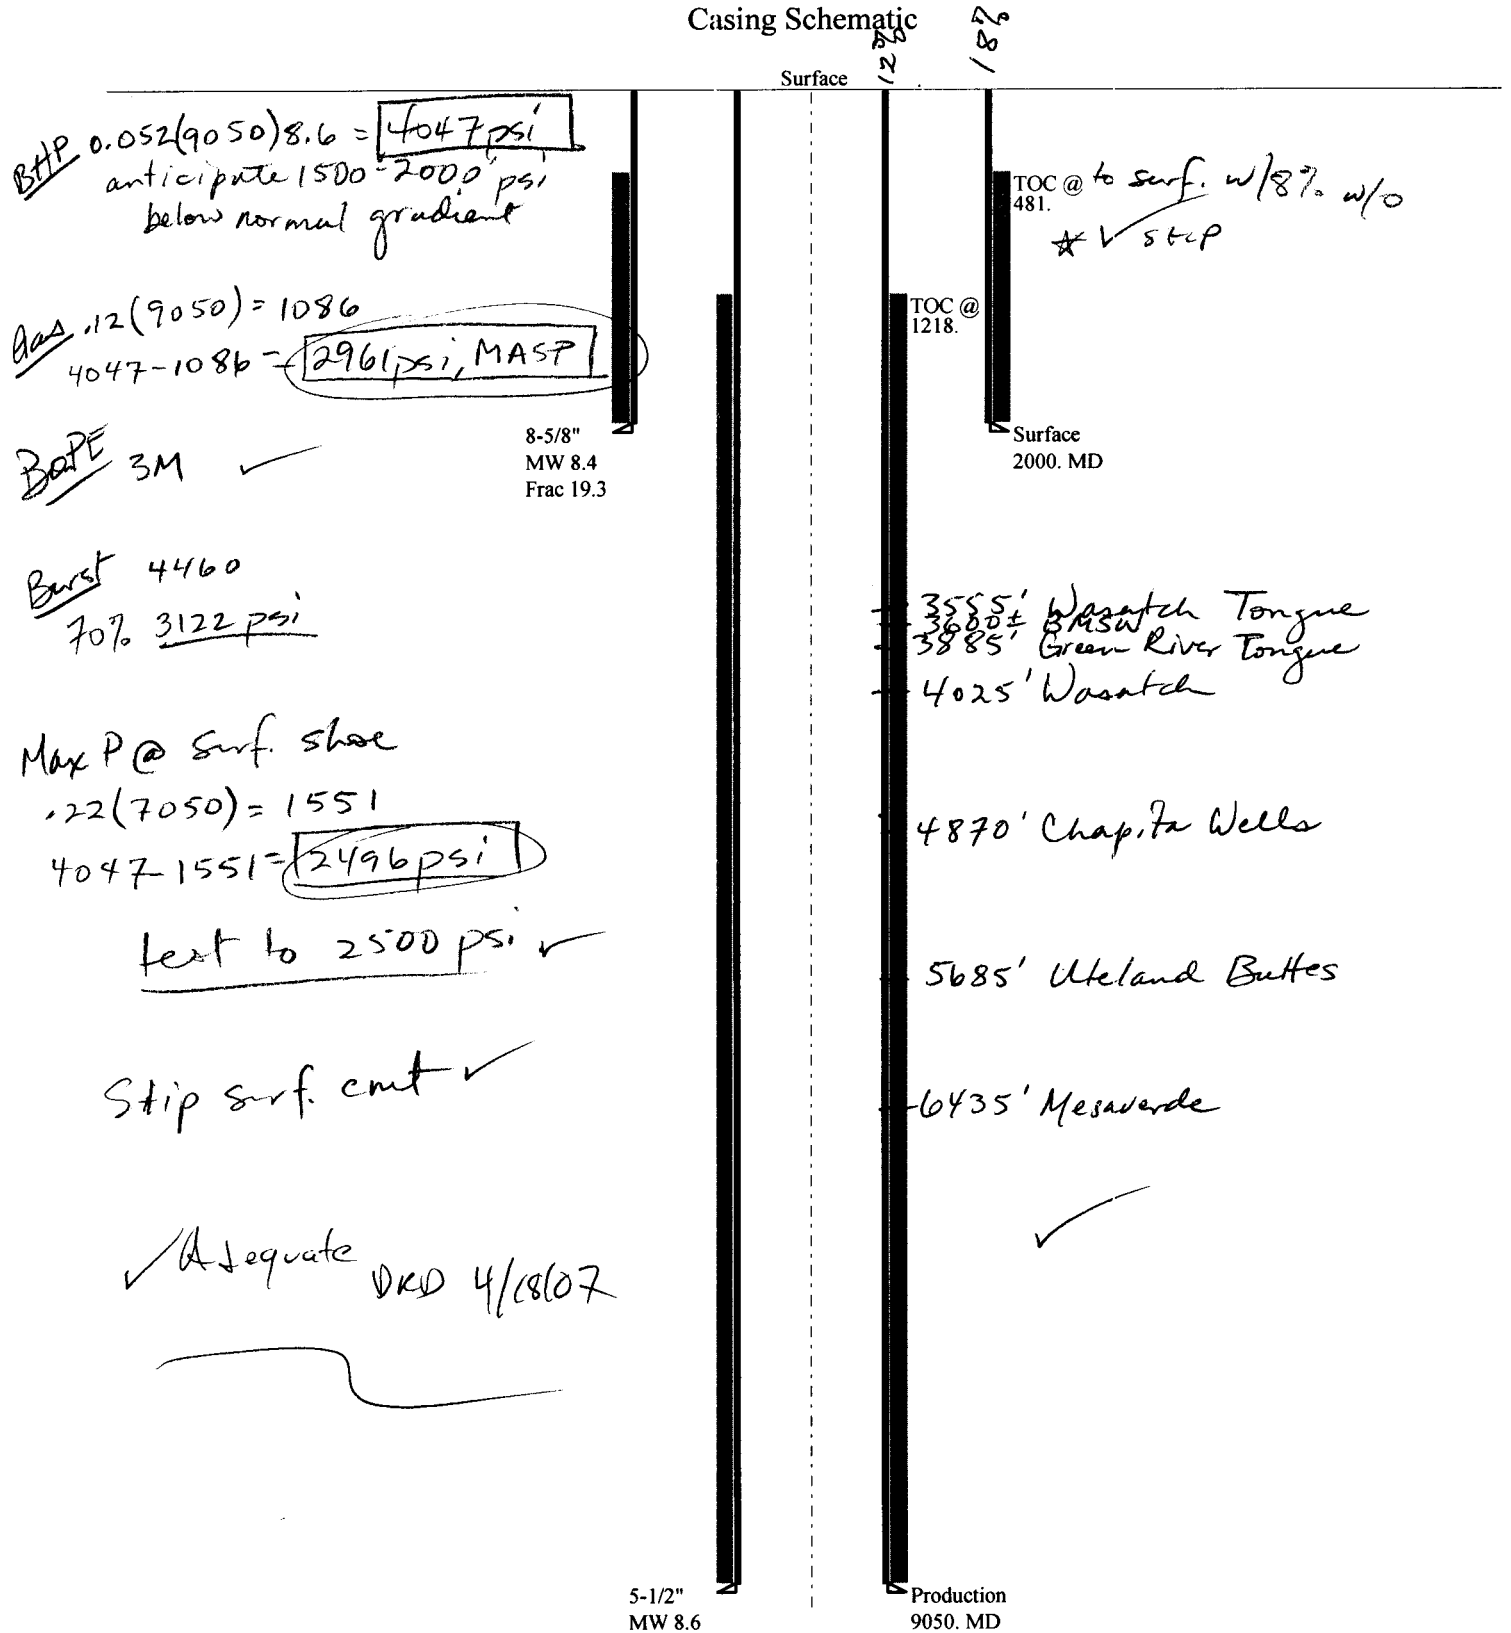 Casing Schematic
Surface
12%
18%
BHP 0.052(9050)8.6 = 4047 psi
anticipate 1500-2000 psi
below normal gradient
Gas .12(9050) = 1086
4047-1086 = 2961 psi, MASP
BOPE 3M ✓
Burst 4460
70% 3122 psi
Max P @ surf. shoe
.22(7050) = 1551
4047-1551 = 2496 psi
test to 2500 psi ✓
Stip surf. cmt ✓
✓ Adequate DKD 4/18/07
8-5/8"
MW 8.4
Frac 19.3
TOC @ to surf. w/8% w/o
481.
* ✓ stip
TOC @
1218.
Surface
2000. MD
3555' Wasatch Tongue
3600± BMSW
3885' Green River Tongue
4025' Wasatch
4870' Chapita Wells
5685' Uteland Buttes
6435' Mesaverde
✓
5-1/2"
MW 8.6
Production
9050. MD